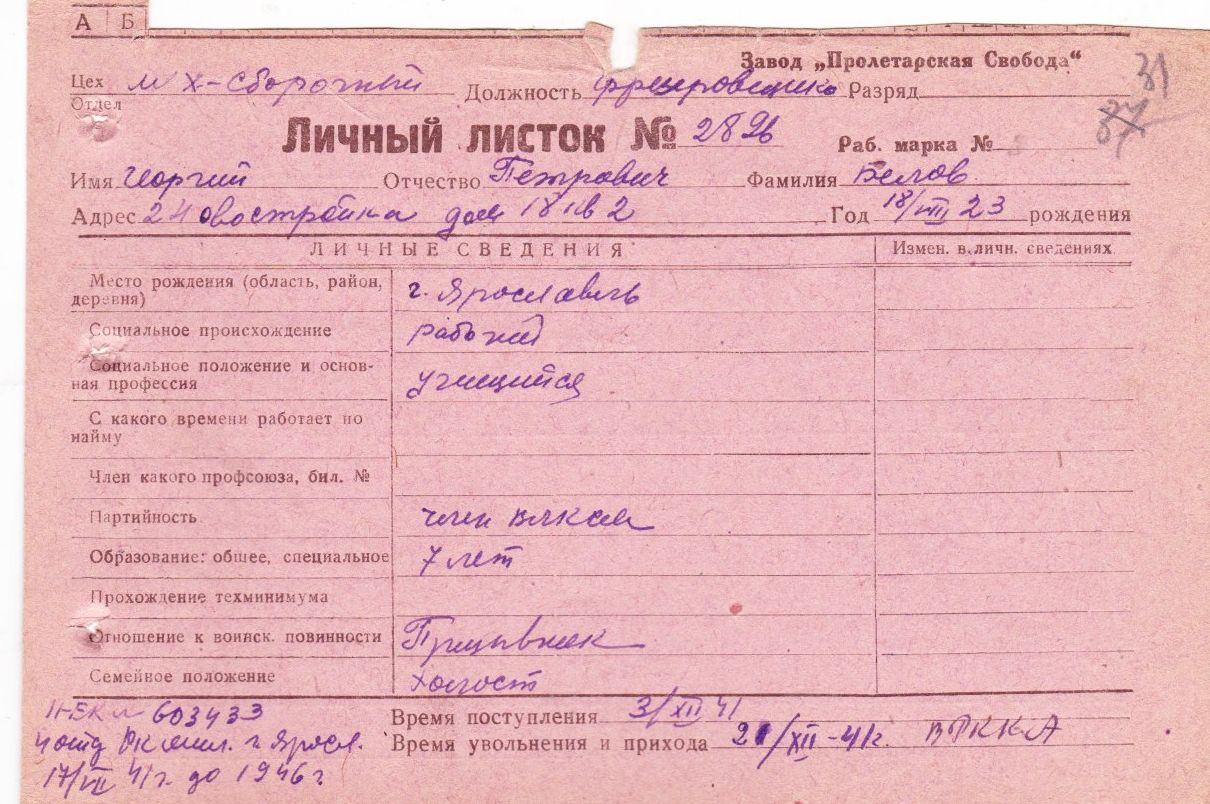 А Б
Завод „Пролетарская Свобода“
31
87
Цех м х-сборочный Должность Разряд
Отдел
Личный листок № 2896
Раб. марка №
Имя Георгий Отчество Петрович Фамилия Белов
Адрес дом 18 кв 2 Год 18/VIII 23 рождения
ЛИЧНЫЕ СВЕДЕНИЯ Измен. в личн. сведениях
Место рождения (область, район, деревня) г. Ярославль
Социальное происхождение рабочий
Социальное положение и основ-
ная профессия учащийся
С какого времени работает по
найму
Член какого профсоюза, бил. №
Партийность член ВЛКСМ
Образование: общее, специальное 7 лет
Прохождение техминимума
Отношение к воинск. повинности Призывник
Семейное положение холост
603433
Время поступления 3/XII 41
Время увольнения и прихода 21/XII-41г. в РККА
г Яросл.
41г. до 1946 г